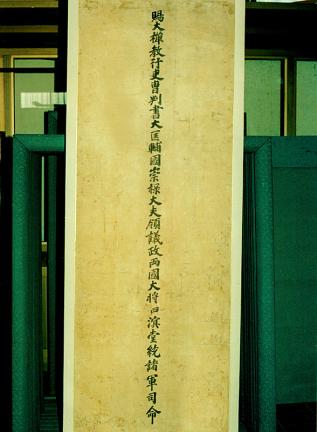 賜大禪教行吏曹判書大匡輔國崇祿大夫領議政兩國大將四溟堂統諸軍司命